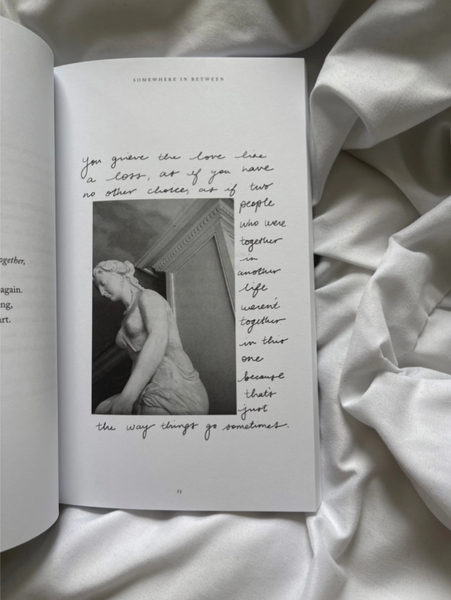 ogether,
again.
ng,
rt.
SOMEWHERE IN BETWEEN
you grieve the love like
a loss, as if you have
no other choice, as if two
people
who were
together
in
another
life
weren't
together
in this
one
because
that's
just
the way things go sometimes.